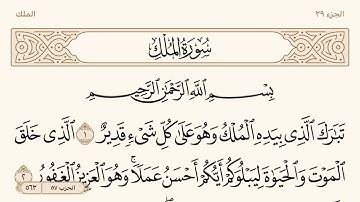 الجزء ٢٩
الملك
سُورَةُ الْمُلْكِ
بِسْمِ اللَّهِ الرَّحْمَٰنِ الرَّحِيمِ
تَبَٰرَكَ الَّذِي بِيَدِهِ الْمُلْكُ وَهُوَ عَلَىٰ كُلِّ شَيْءٍ قَدِيرٌ ١ الَّذِي خَلَقَ
الْمَوْتَ وَالْحَيَوٰةَ لِيَبْلُوَكُمْ أَيُّكُمْ أَحْسَنُ عَمَلًا ۚ وَهُوَ الْعَزِيزُ الْغَفُورُ ٢
الحزب ٥٧
٥٦٢